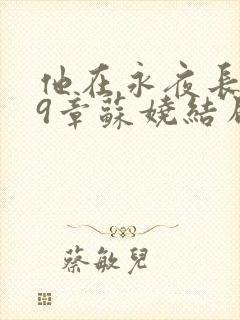 他在永夜長
9章蘇嬈結局
蔡敏兒